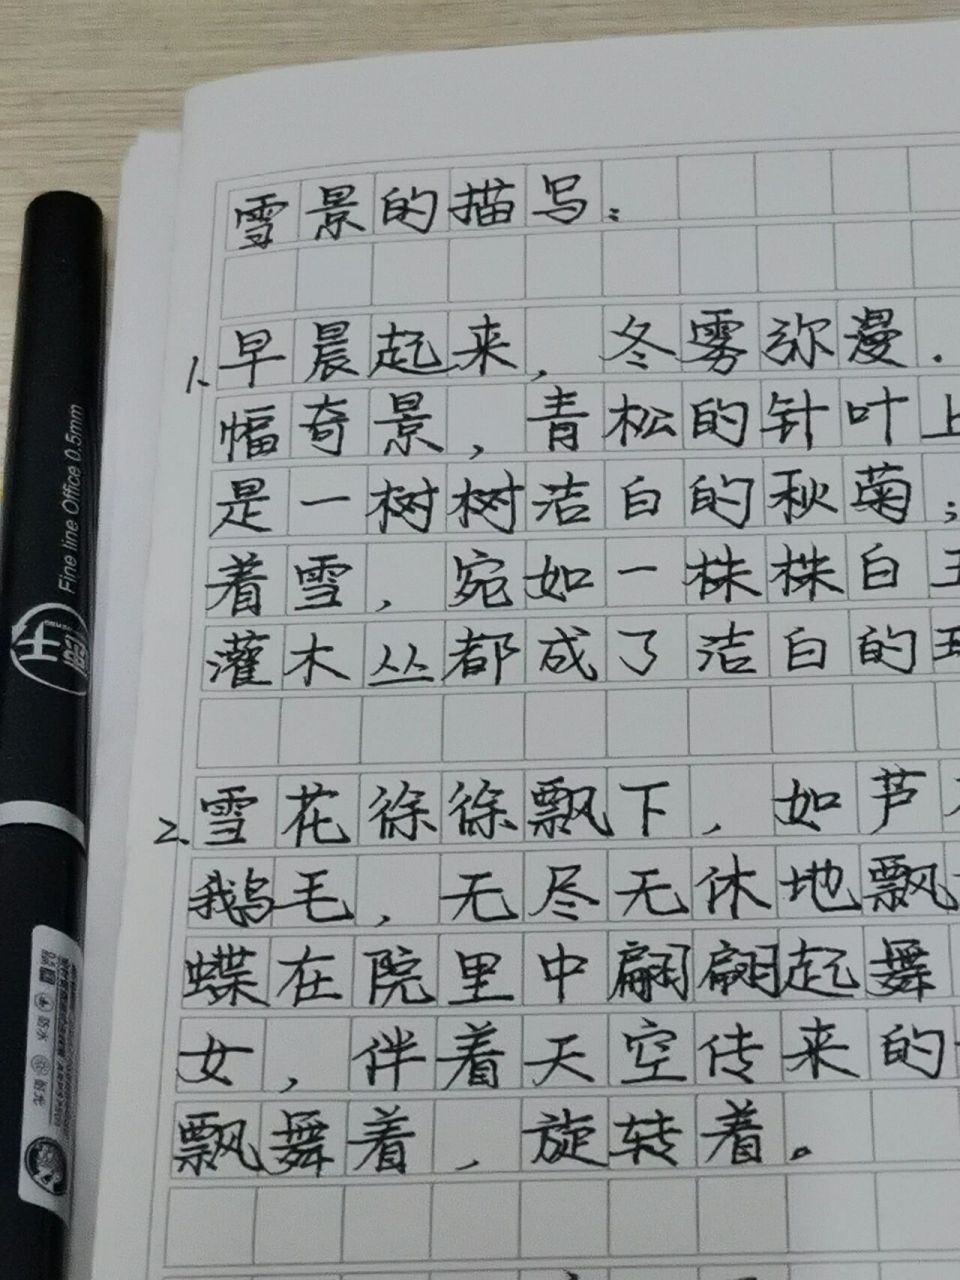 雪景的描写：
1、早晨起来，冬雾弥漫．
幅奇景，青松的针叶上
是一树树洁白的秋菊；
着雪，宛如一株株白玉
灌木丛都成了洁白的
2、雪花徐徐飘下，如芦
鹅毛，无尽无休地飘
蝶在院里中翩翩起舞
女，伴着天空传来的
飘舞着，旋转着。
Fine line Office 0.5mm